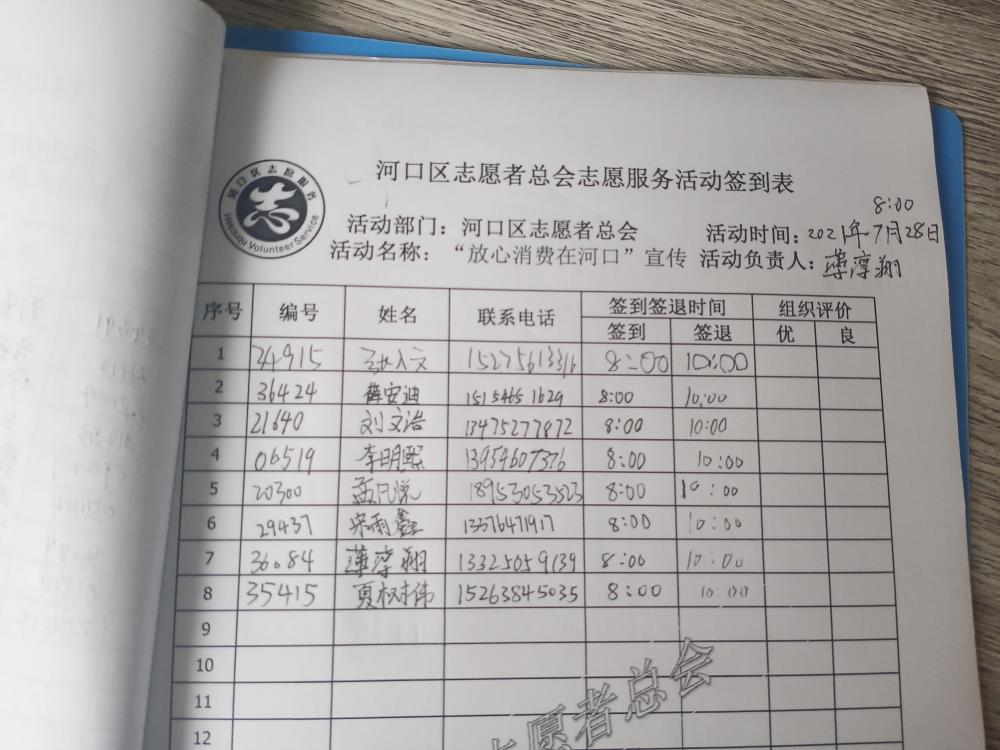 河口区志愿服务
志
Hekouqu Volunteer Service
河口区志愿者总会志愿服务活动签到表
8:00
活动部门：河口区志愿者总会 活动时间：2021年7月28日
活动名称：“放心消费在河口”宣传 活动负责人：薄淳翔
序号 编号 姓名 联系电话 签到签退时间 组织评价
签到 签退 优 良
1 34915 15275613316 8:00 10:00
2 36424 薛安迪 15154651629 8:00 10:00
3 21640 刘文浩 13475277872 8:00 10:00
4 06519 李明熙 13954607376 8:00 10:00
5 20300 孟凡悦 18953053523 8:00 10:00
6 29437 宋雨鑫 13376471917 8:00 10:00
7 36084 薄淳翔 13325059139 8:00 10:00
8 35415 夏树伟 15263845035 8:00 10:00
9
10
11
12
志愿者总会